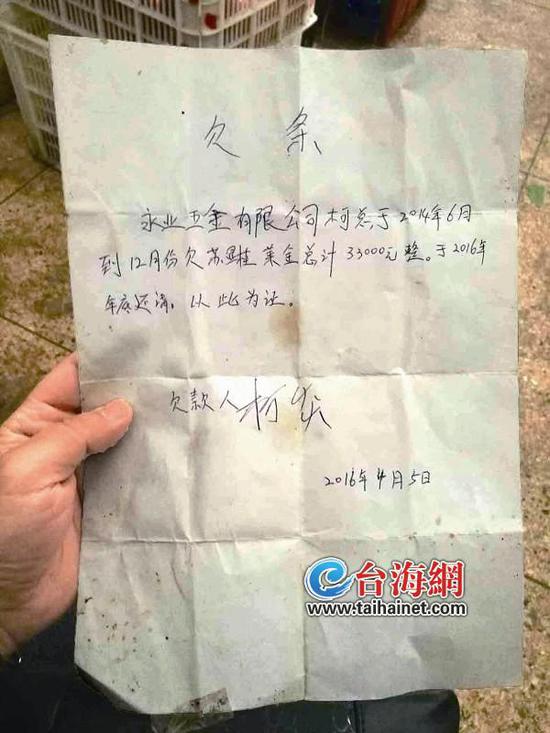 欠 条
永业五金有限公司柯总于2014年6月
到12月份欠苏桂菜金总计33000元整。于2016年
年底还清，以此为证。
欠款人柯
2016年4月5日
台海網
www.taihainet.com